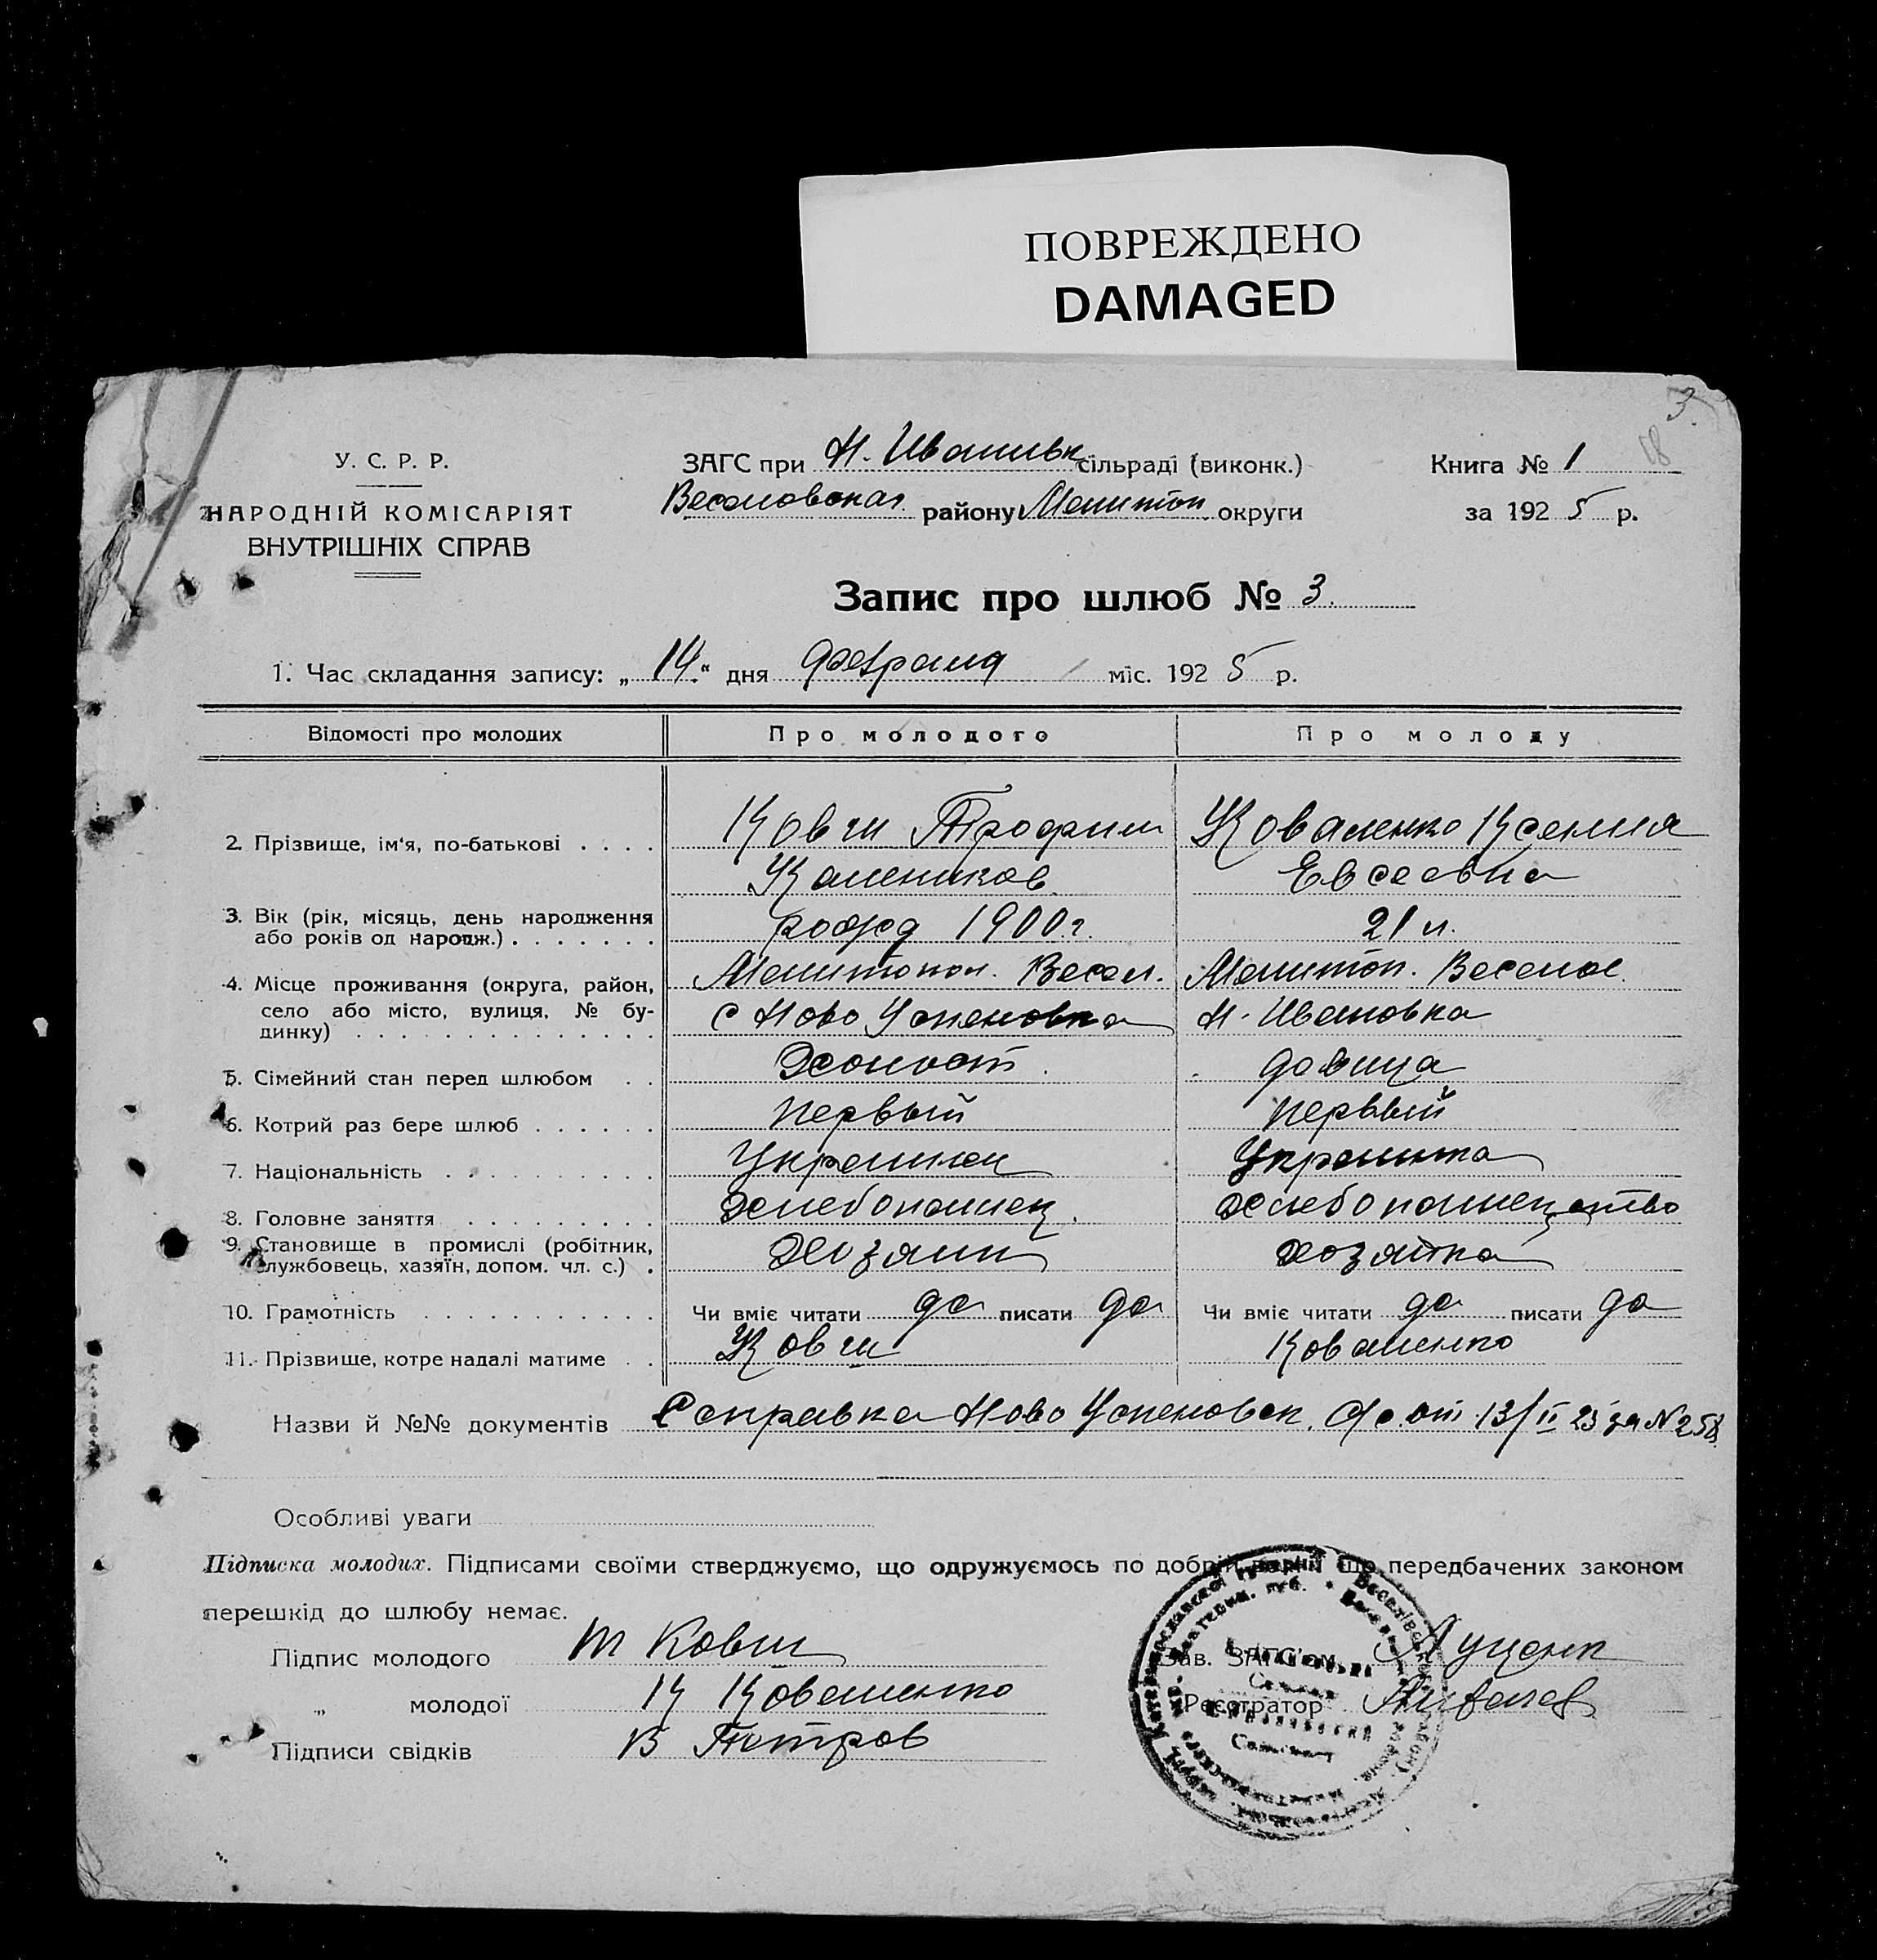 ПОВРЕЖДЕНО
DAMAGED
3
18
У. С. Р. Р.
НАРОДНІЙ КОМІСАРІЯТ
ВНУТРІШНІХ СПРАВ
ЗАГС при Н. Иваньвк сільраді (виконк.)
Веселовская району Мелитоп округи
Книга № 1
за 1925 р.
Запис про шлюб № 3.
1. Час складання запису: „14“ дня февраля міс. 1925 р.
Відомості про молодих Про молодого Про молоду
2. Прізвище, ім‘я, по-батькові . . . . Ковш Трофим Коваленко Ксения
Калеников Евсеевна
3. Вік (рік, місяць, день народження
або років од народж.) . . . . . . . рожд 1900 г. 21 л.
4. Місце проживання (округа, район,
село або місто, вулиця, № бу-
динку) . . . . . . . . . . . . . . Мелитопол. Весел. Мелитоп. Веселое.
с Ново Успеновка Н. Ивановка
5. Сімейний стан перед шлюбом . . Холост. девица
6. Котрий раз бере шлюб . . . . . . первый первый
7. Національність . . . . . . . . . . Украинец Украинка
8. Головне заняття . . . . . . . . . хлебопашец. хлебопашецтво
9. Становище в промислі (робітник,
службовець, хазяїн, допом. чл. с.) . хозяин хозяйка
10. Грамотність . . . . . . . . . . . Чи вміє читати да писати да Чи вміє читати да писати да
11. Прізвище, котре надалі матиме . . Ковш Коваленко
Назви й №№ документів Справка Ново Успеновск. С/с. от 13/II 25 за N 258
Особливі уваги
Підписка молодих. Підписами своїми стверджуємо, що одружуємось по добрій що передбачених законом
перешкід до шлюбу немає.
Підпис молодого Т Ковш
Зав. ЗАГС'ом Луценк
„ молодої К Коваленко
Реєстратор
Підписи свідків В Петров